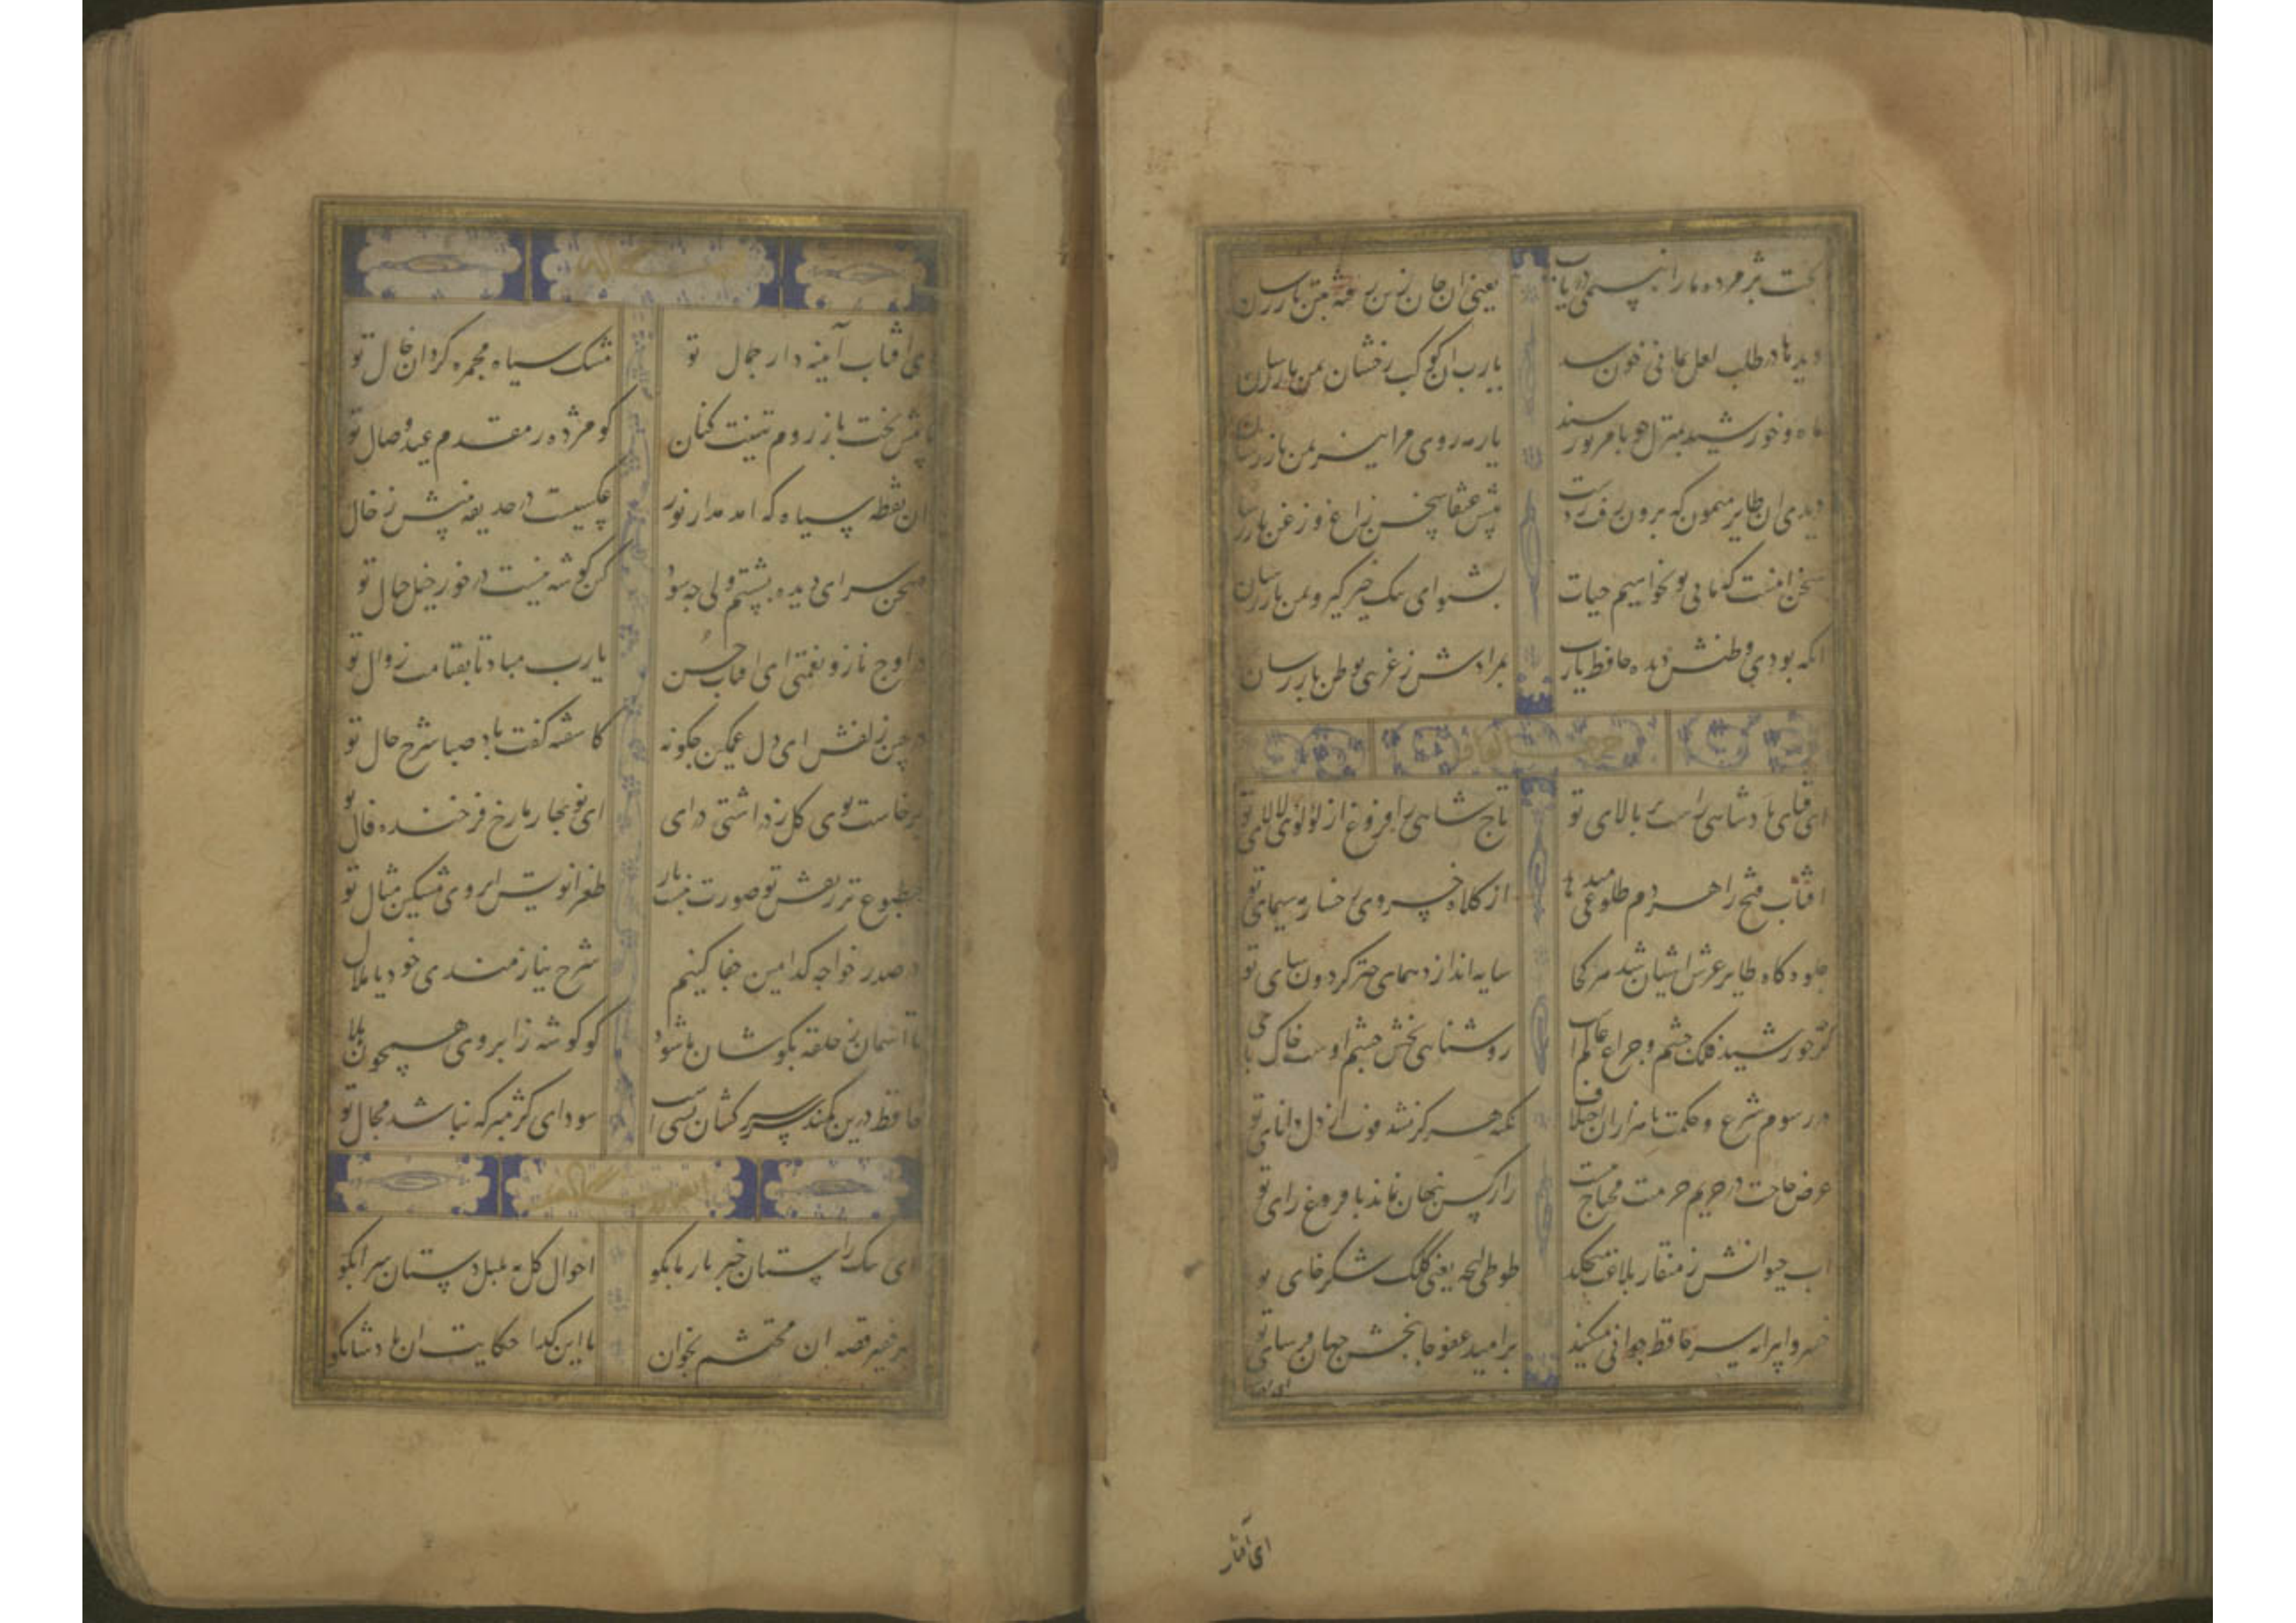 بخت پژمرده ما را به نسیمی دریاب یعنی ان جان ز تن رفته بتن باز رسان
دیدها در طلب لعل یمانی خون شد یارب ان کوکب رخشان بمن باز رسان
ماه و خورشید بمنزل چو بامر تو رسند یار مه روی مرا نیز بمن باز رسان
دیدی ان طایر میمون که برون رفت ز دست پیش عنقا سخن زاغ و زغن باز رسان
سخن اینست که ما بی تو نخواهیم حیات بشنو ای پیک خبر گیر و بمن باز رسان
انکه بودی وطنش دیده حافظ یارب بمرادش ز غریبی بوطن باز رسان
ای قبای پادشاهی راست بر بالای تو تاج شاهی را فروغ از لؤلؤی لالای تو
افتاب فتح را هر دم طلوعی میدهد از کلاه خسروی رخسار مه سیمای تو
جلوه گاه طایر عرش اشیان شد هر کجا سایه اندازد همای چتر گردون سای تو
گر چه خورشید فلک چشم و چراغ عالم است روشنایی بخش چشم اوست خاک پای تو
در رسوم شرع و حکمت با هزاران اختلاف نکته هرگز نشد فوت از دل دانای تو
عرض حاجت در حریم حرمتت محتاج نیست راز کس پنهان نماند با فروغ رای تو
اب حیوانش ز منقار بلاغت میچکد طوطی لهجه یعنی کلک شکر خای تو
خسروا پیرانه سر حافظ جوانی میکند بر امید عفو جان بخش جهان فرسای تو
ای آفتاب
ای آفتاب آینه دار جمال تو مشک سیاه مجمره گردان خال تو
تا پیش بخت باز روم تهنیت کنان کو مژده ز مقدم عید وصال تو
ان نقطه سیاه که امد مدار نور عکسیست در حدیقه بینش ز خال تو
صحن سرای دیده بشستم ولی چه سود کین گوشه نیست در خور خیل خیال تو
در اوج ناز و نعمتی ای افتاب حسن یارب مباد تا بقیامت زوال تو
در چین زلفش ای دل غمگین چگونه کاشفته گفت باد صبا شرح حال تو
برخاست بوی گل ز در آشتی درای ای نوبهار ما رخ فرخنده فال تو
مطبوع تر ز نقش تو صورت نبست باز طغرا نویس ابروی مشکین مثال تو
در صدر خواجه کدامین جفا کنیم شرح نیازمندی خود یا ملال تو
تا آسمان ز حلقه بگوشان ما شود کو گوشه ز ابروی همچون هلال تو
حافظ درین کمند سر سرکشان بسی است سودای کژ مبر که نباشد مجال تو
ای پیک راستان خبر یار ما بگو احوال گل به بلبل دستان سرا بگو
بر فقیر قصه ان محتشم بخوان با این گدا حکایت ان پادشا بگو